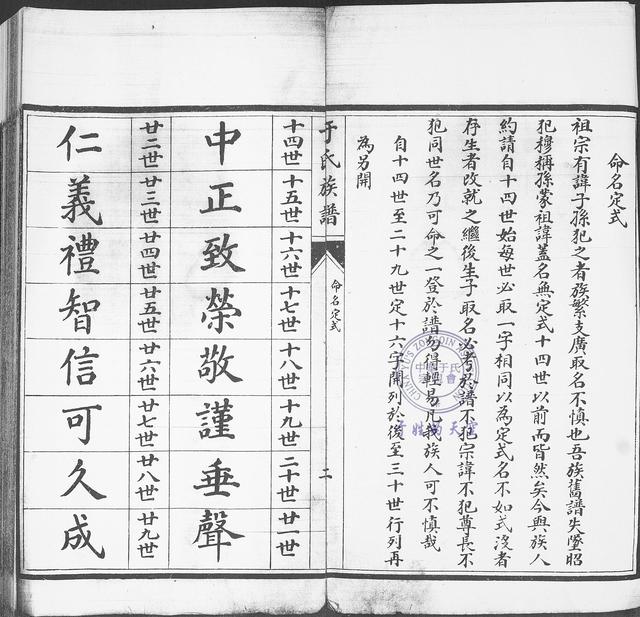 命名定式
祖宗有諱子孫犯之者族繁支廣取名不慎也吾族舊譜失墜昭
犯穆稱孫蒙祖諱蓋名無定式十四世以前而皆然矣今與族人
約請自十四世始每世必取一字相同以為定式名不如式沒者
存生者改就之繼後生子取名必考於譜不犯宗諱不犯尊長不
犯同世名乃可命之一登於譜勿得輕易凡我族人可不慎哉
自十四世至二十九世定十六字開列於後至三十世行列再
為另開
于氏族譜
命名定式
二
十四世 十五世 十六世 十七世 十八世 十九世 二十世 廿一世
中 正 致 榮 敬 謹 垂 聲
廿二世 廿三世 廿四世 廿五世 廿六世 廿七世 廿八世 廿九世
仁 義 禮 智 信 可 久 成